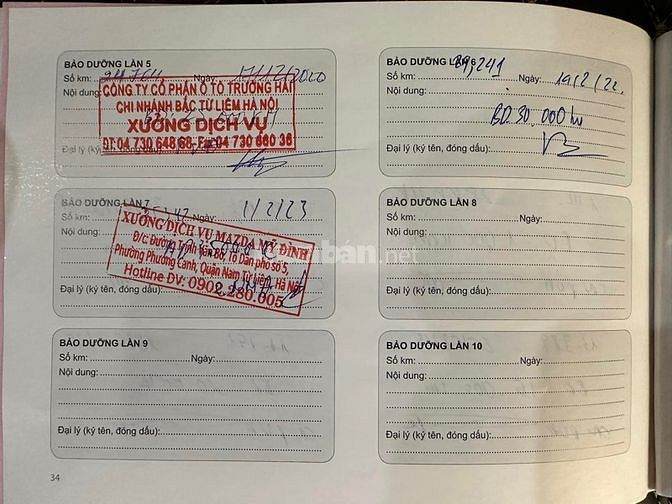 BẢO DƯỠNG LẦN 5
Số km: 24.764 Ngày: 17/12/2020
Nội dung:
CÔNG TY CỔ PHẦN Ô TÔ TRƯỜNG HẢI
CHI NHÁNH BẮC TỪ LIÊM HÀ NỘI
XƯỞNG DỊCH VỤ
ĐT: 04 730 648 68 - Fax: 04 730 660 36
Đại lý (ký
BẢO DƯỠNG LẦN 6
Số km: 29,241 Ngày: 19/2/22
Nội dung:
BD 30.000 km
Đại lý (ký tên, đóng dấu):
BẢO DƯỠNG LẦN 7
Số km: Ngày: 1/2/23
Nội dung:
XƯỞNG DỊCH VỤ MAZDA MỸ ĐÌNH
Đ/c: Đường Trịnh Văn Bô, Tổ Dân phố số 5,
Phường Phương Canh, Quận Nam Từ Liêm, Hà Nội
Hotline DV: 0902.280.005
Đại lý (ký tên, đóng dấu):
BẢO DƯỠNG LẦN 8
Số km: Ngày:
Nội dung:
Đại lý (ký tên, đóng dấu):
BẢO DƯỠNG LẦN 9
Số km: Ngày:
Nội dung:
Đại lý (ký tên, đóng dấu):
BẢO DƯỠNG LẦN 10
Số km: Ngày:
Nội dung:
Đại lý (ký tên, đóng dấu):
34